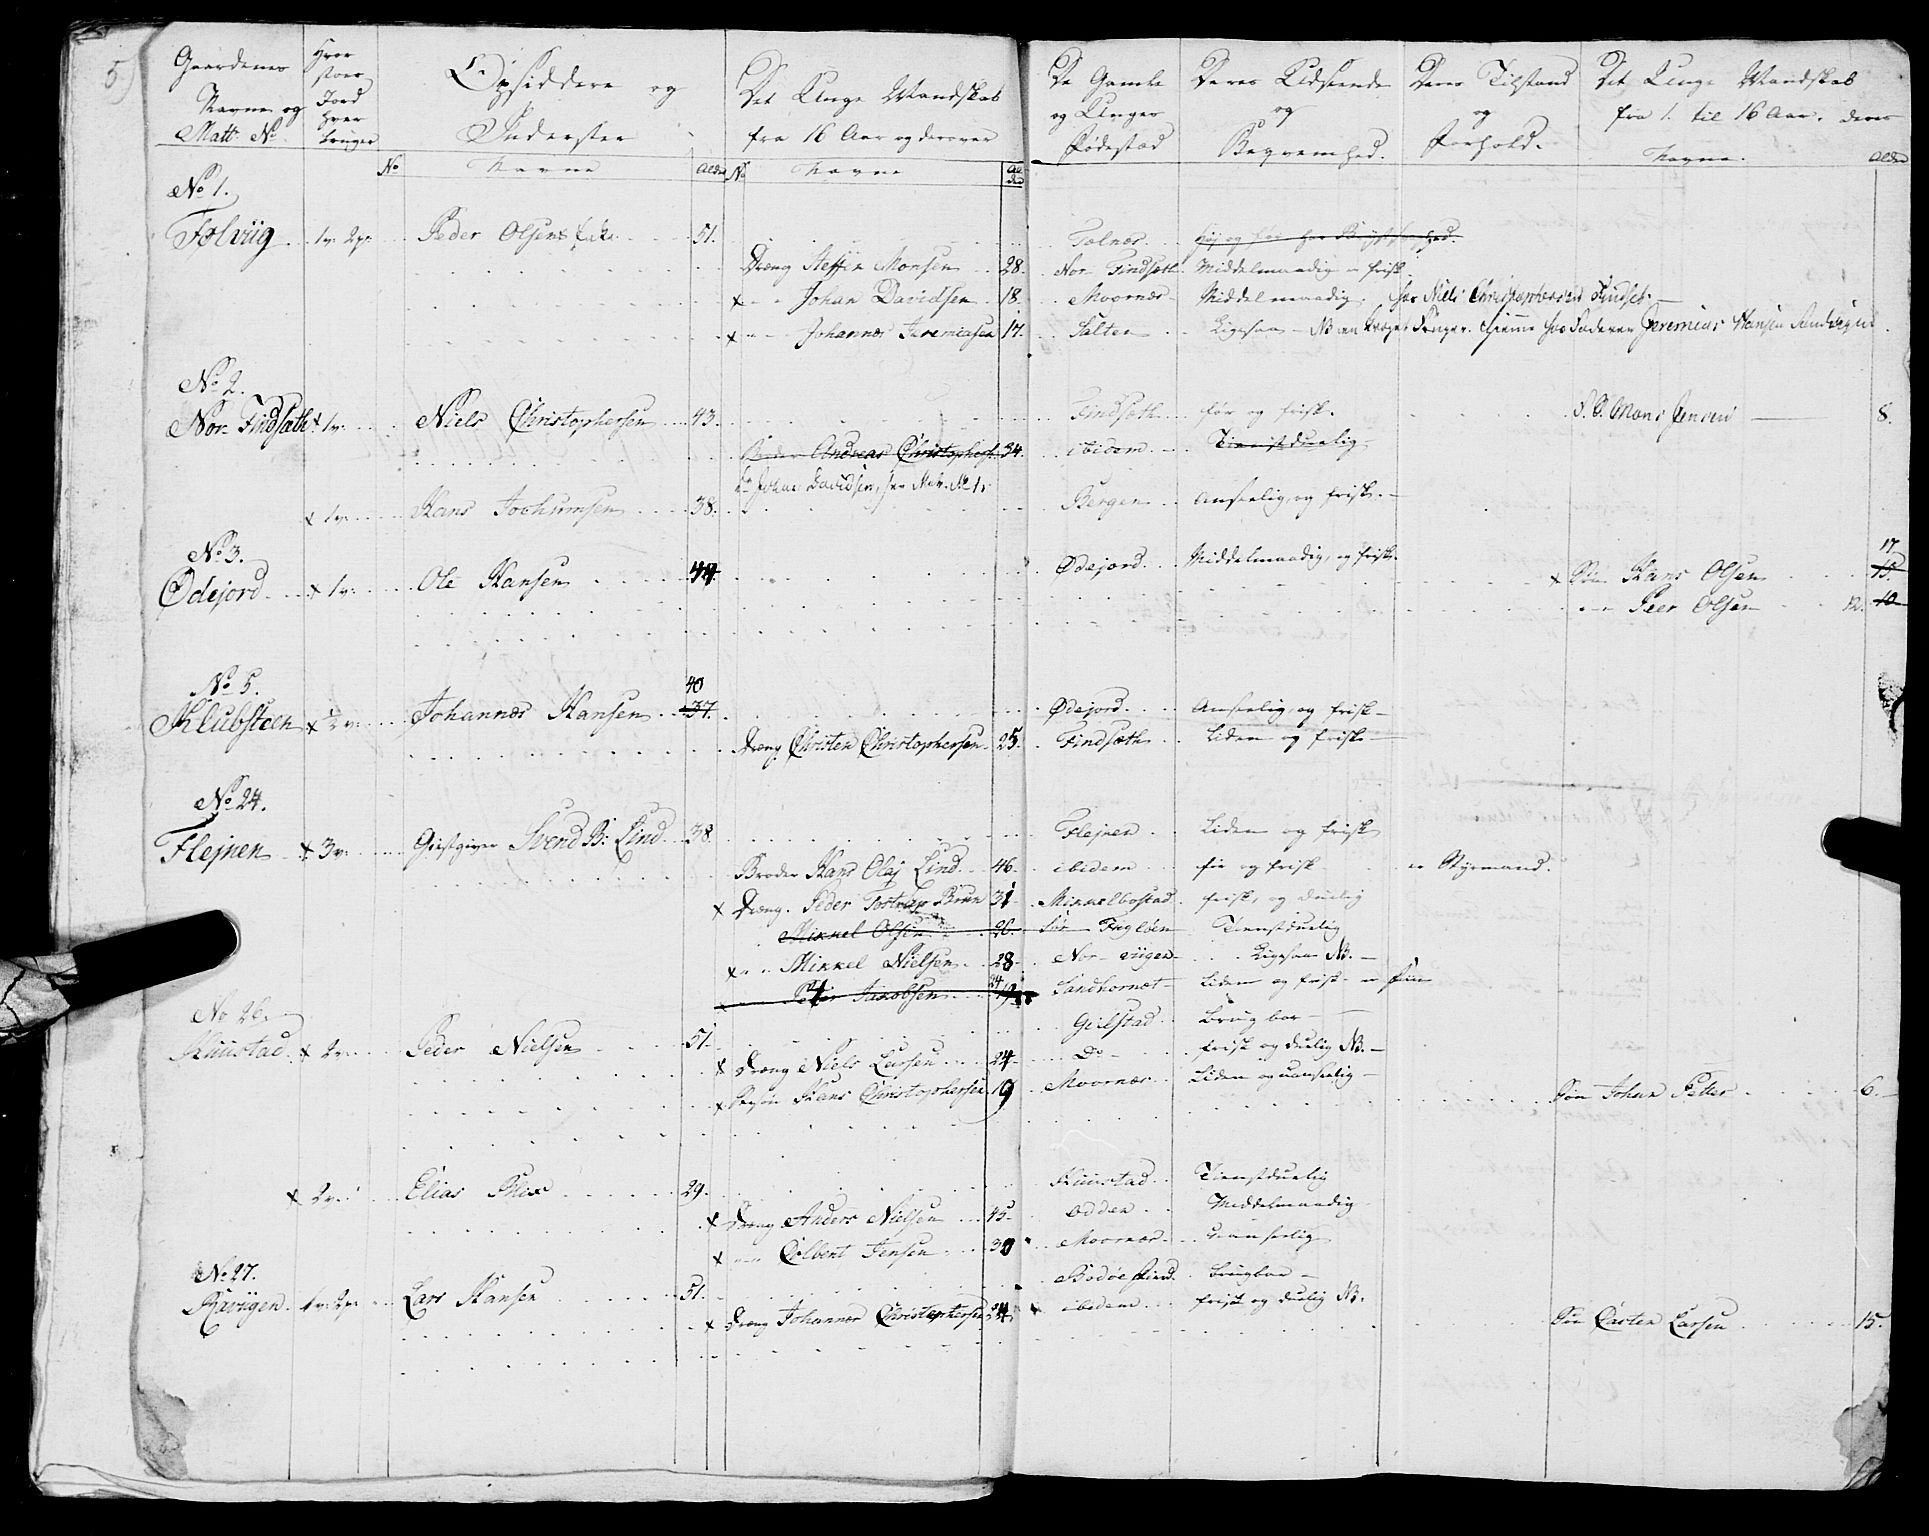 5)
Gaardenes Navne og Matt: No
Hvor stoer Jord hver bruger
Opsiddere og Inderster
Det Unge Mandskab fra 16 Aar og derover
De Gamle og Unges Fødestad
Deres Udseende og Beqvemhed.
Deres Tilstand og Forhold.
Det Unge Mandskab fra 1. til 16 Aar. deres
No Navne Alder No Navne Alder Navne. Alder
No 1.
Tolviig 1v: 2p: Peder Olsen 51. Tolnæs
Dreng Steffen Monsen 28. Nor Findsæth Middelmaadig frisk
x Johan Davidsen 18. Moornæs Middelmaadig. hos Niels Christophersen Findset
x Johannes Jeremiasen 17. Salten Ligesaa NB en krøget Finger. hiemme hos Faderen Jeremias Hansen
No 2.
Nor Findsæth x 1v: Niels Christophersen 43. Findsæth før og frisk. Mons Jensen 8.
Broder Andreas Christophers: 34. ibidem Tienistduelig
Johan Davidsen, see Matr. No 1.
x 1v: Hans Jochumsen 38. Bergen Anseelig, og frisk.
No 3.
Ødejord x 1v: Ole Hansen 44. Ødejord Middelmaadig, og frisk. x Søn Hans Olsen 17. 15.
Peer Olsen 12. 10
No 5.
Klubsteen x ½ v: Johannes Hansen 40 37. Ødejord Anseelig, og frisk
Dreng Christen Christophersen 25. Findsæth Liden og frisk
No 24.
Flejnen x 3v: Giestgiver Svend B: Lind 38. Flejnen Liden og frisk
Broder Hans Olaj Lind 46. ibidem før og frisk er Styrmand.
x Dreng. Peder Tostrup Brun 31 Mikkelbostad frisk, og duelig
Mikkel Olsen 26. Sør Fugløen Tienstduelig
x Mikkel Nielsen 28 Nor viigen Ligesaa NB.
Peder Jacobsen 24 19. Sandhornøt Liden og frisk
No 26.
x 2v: Peder Nielsen 51. Gillstad Brugbar
x Dreng Niels Larsen 24 Do frisk og duelig NB.
x Hans Christophersen 19 Moornæs Liden og uanseelig
Søn Johan Petter 6.
x 2v: Elias 29. Tienstduelig
x Dreng Anders Nielsen 45. Odden Middelmaadig
x Colbent Jensen 30 Moornæs uanseelig
No 27.
1v: 2p: Lars Hansen 51. Bodøe Brugbar
x Dreng Johannes Christophersen 24 ibidem frisk og duelig NB.
Søn Carsten Larsen 15.